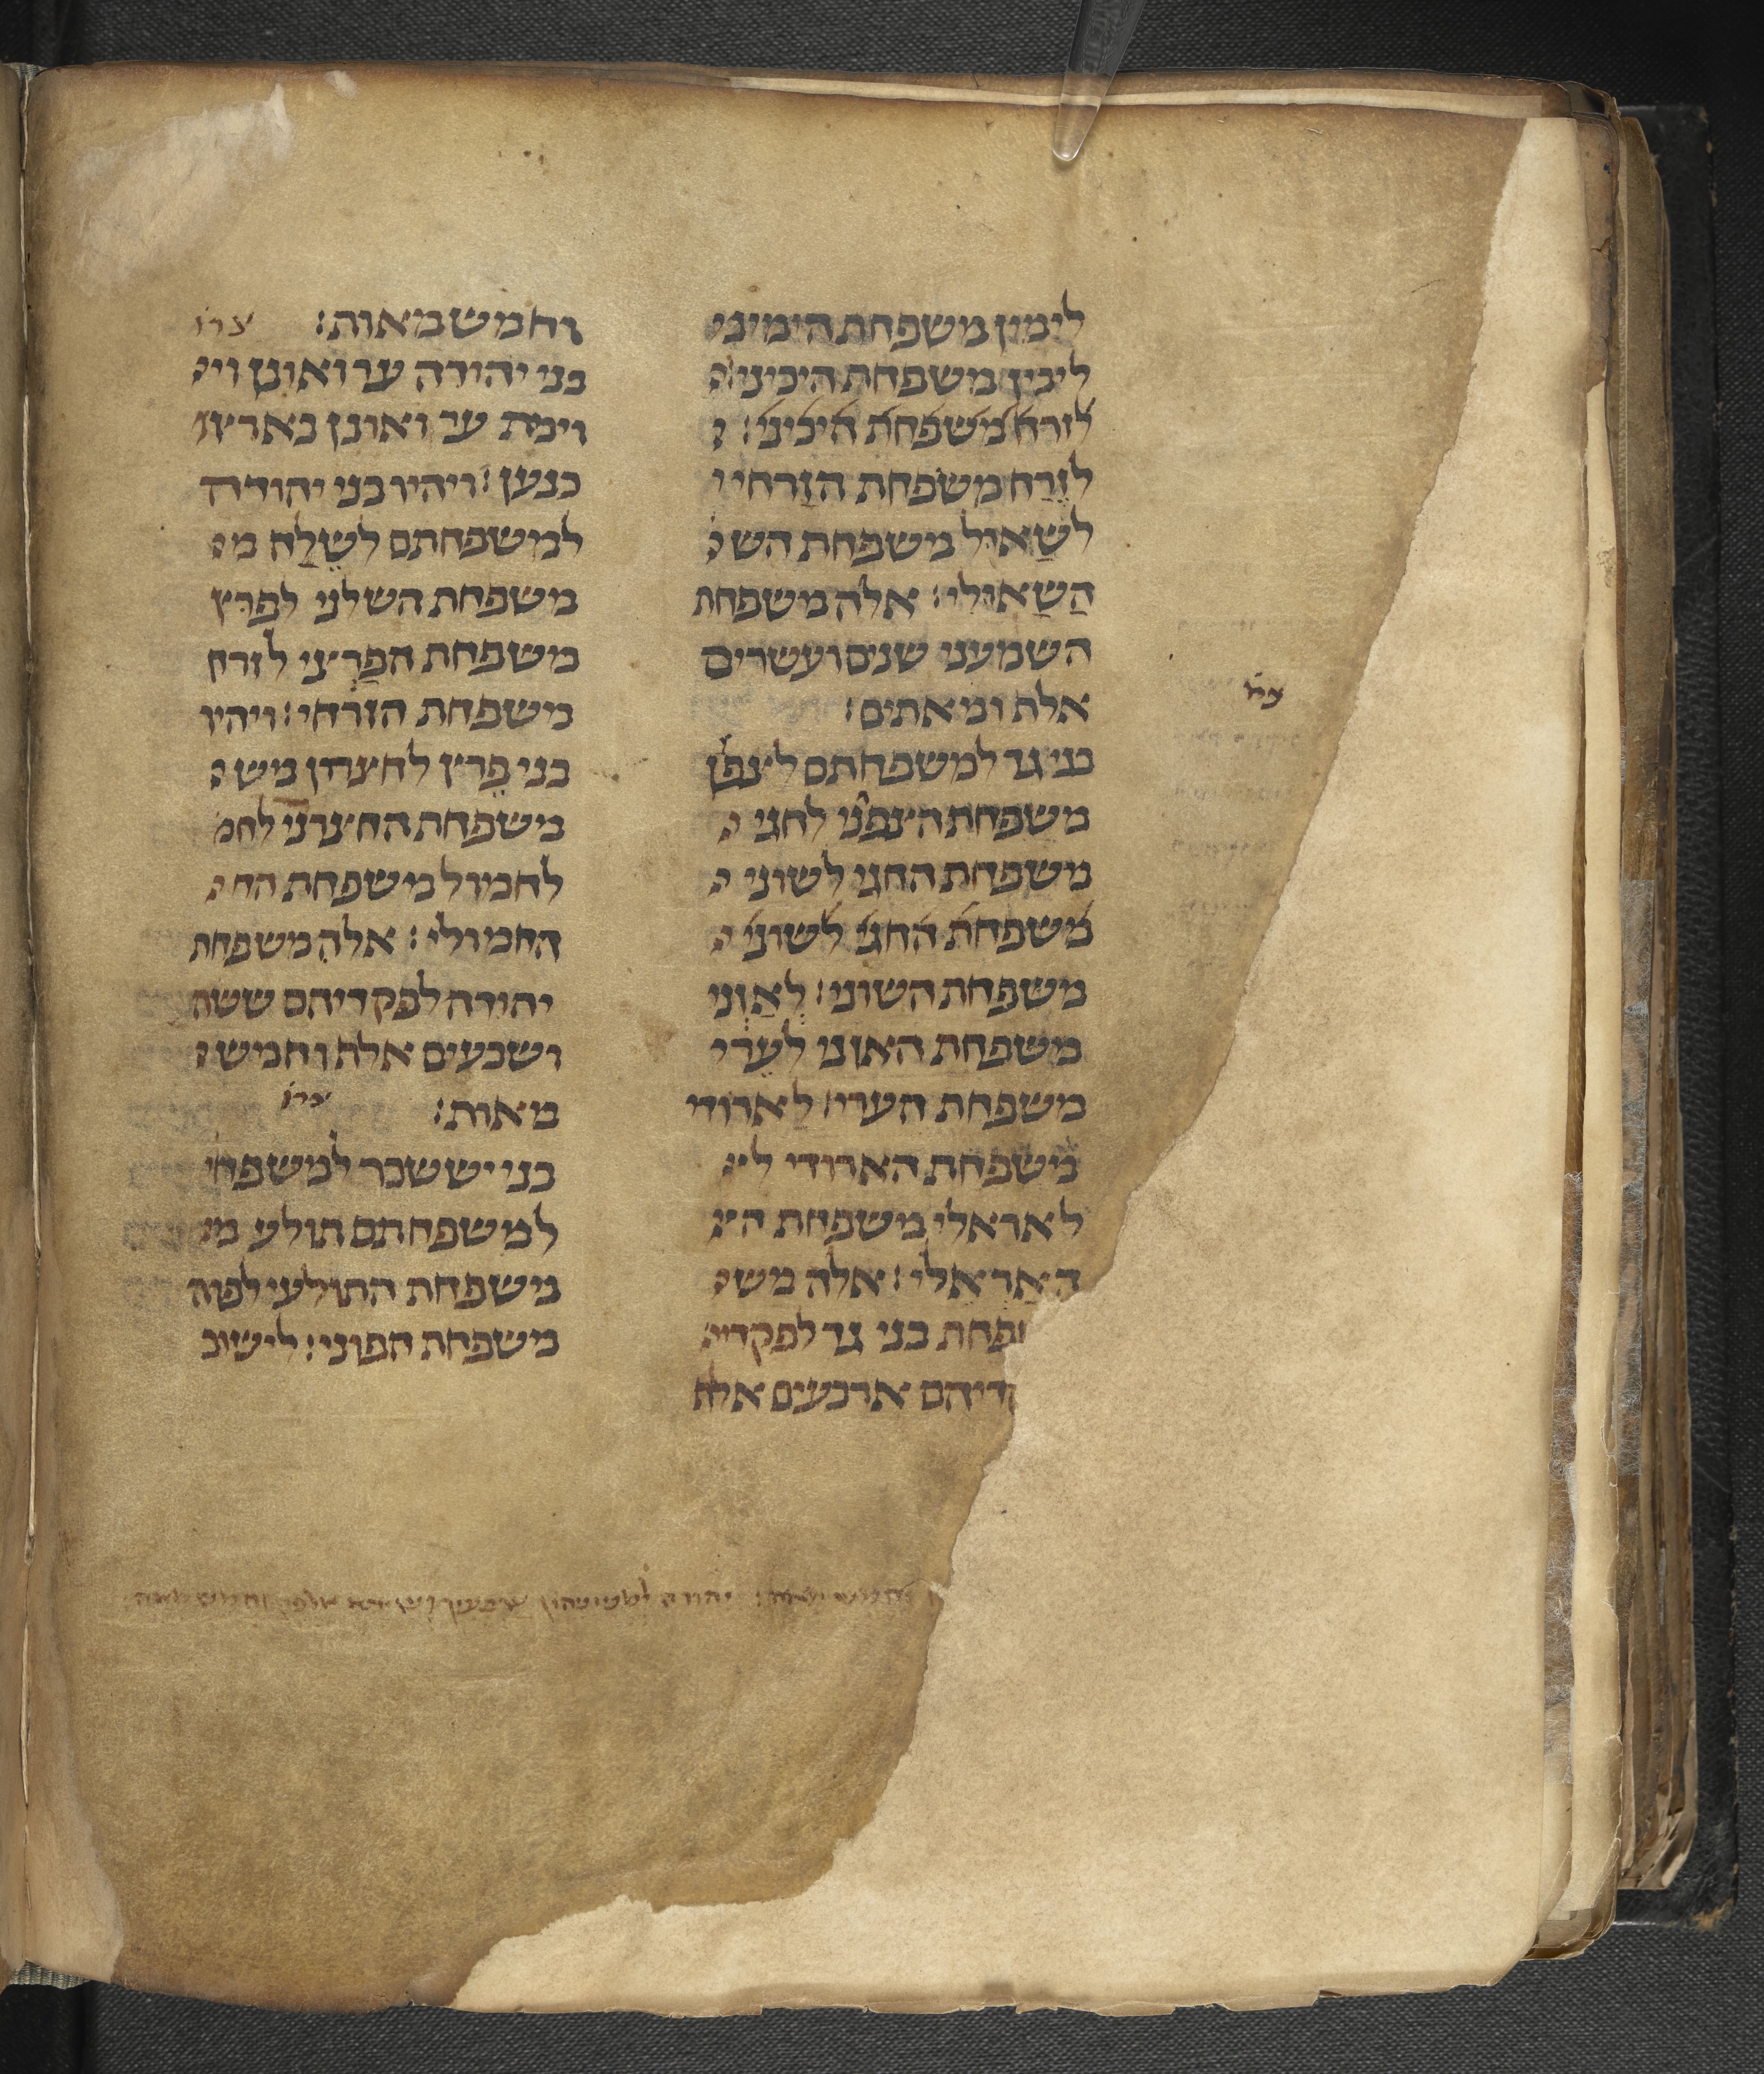 לימין משפחת הימיני
ליכין משפחת היכיני
לזרח משפחת היכיני׃
לזרח משפחת הזרחי
לשאול משפחת הש
השאולי׃ אלה משפחת
השמעני שנים ועשרים
אלף ומאתים׃
בני גד למשפחתם לצפון
משפחת הצפני לחגי
משפחת החגי לשוני
משפחת החגי לשוני
משפחת השוני׃ לאזני
משפחת האזני לערי
משפחת הערי׃ לארודי
משפחת הארודי
לאראלי משפחת
האראלי׃ אלה מש
פחת בני גד לפקדי
דיהם ארבעים אלף
וחמש מאות׃
בני יהודה ער ואונן וי
וימת ער ואונן בארץ
כנען׃ ויהיו בני יהודה
למשפחתם לשלה מ
משפחת השלני לפרץ
משפחת הפרצי לזרח
משפחת הזרחי׃ ויהיו
בני פרץ לחצרון מש
משפחת החצרני לחמ
לחמול משפחת הח
החמולי׃ אלה משפחת
יהודה לפקדיהם ששה
ושבעים אלף וחמש
מאות׃
בני יששכר למשפח
למשפחתם תולע מ
משפחת התולעי לפוה
משפחת הפוני׃ לישוב